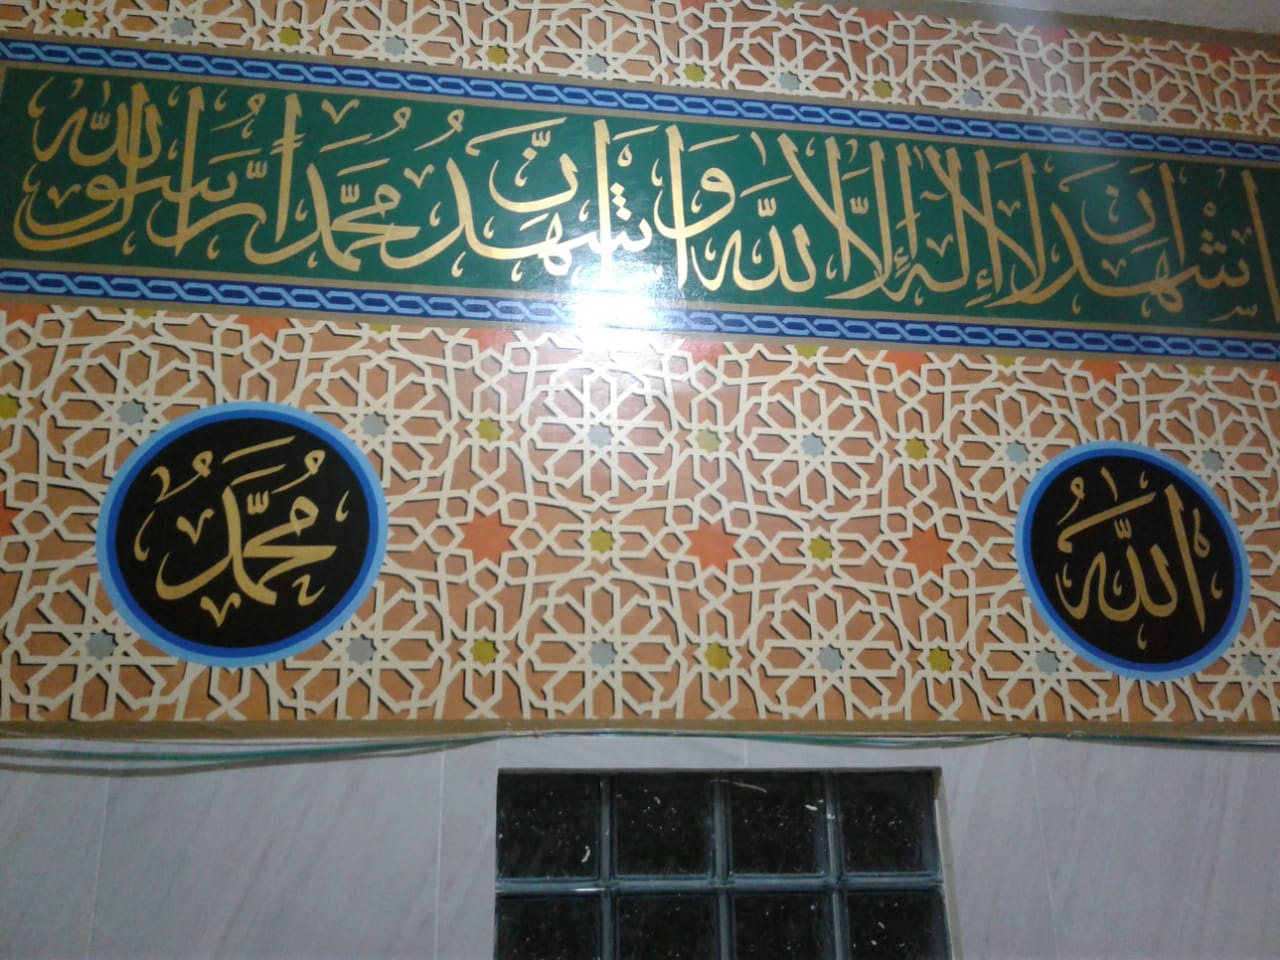 اشهد ان لا إله إلا الله واشهد ان محمدا رسول الله
الله
محمد